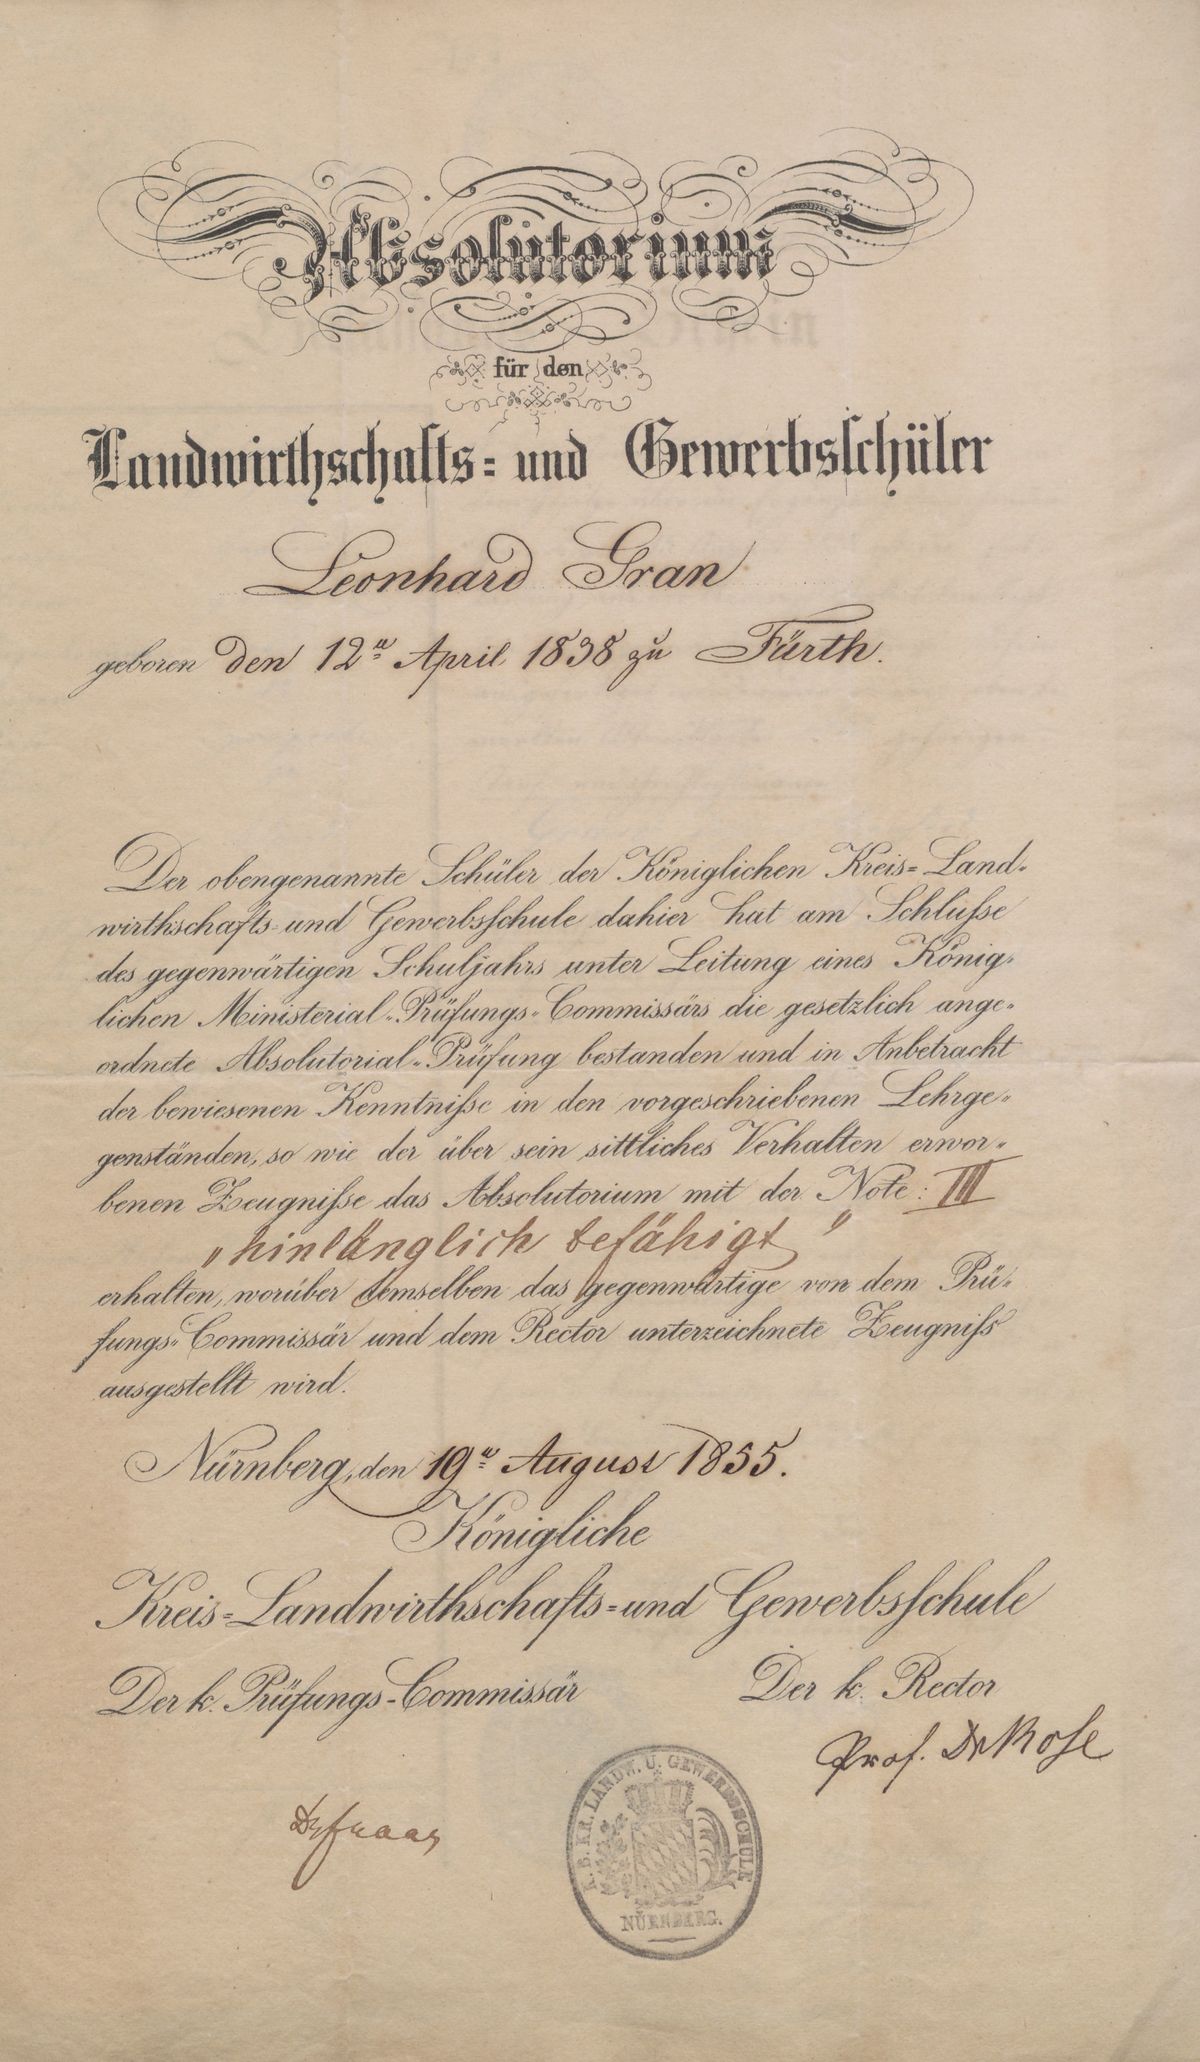 Absolutorium
für den
Landwirthschafts- und Gewerbsschüler
Leonhard Gran
geboren den 12n April 1838 zu Fürth.
Der obengenannte Schüler der Königlichen Kreis-Land-
wirthschafts- und Gewerbsschule dahier hat am Schluße
des gegenwärtigen Schuljahrs unter Leitung eines König-
lichen Ministerial-Prüfungs-Commissärs die gesetzlich ange-
ordnete Absolutorial-Prüfung bestanden und in Anbetracht
der bewiesenen Kenntniße in den vorgeschriebenen Lehrge-
genständen, so wie der über sein sittliches Verhalten erwor-
benen Zeugniße das Absolutorium mit der Note: III
"hinlänglich befähigt"
erhalten, worüber demselben das gegenwärtige von dem Prü-
fungs-Commissär und dem Rector unterzeichnete Zeugniß
ausgestellt wird.
Nürnberg, den 19n August 1855.
Königliche
Kreis-Landwirthschafts- und Gewerbsschule
Der k. Prüfungs-Commissär
Der k. Rector
Prof. Dr Rose
K. B. KR. LANDW. U. GEWERBSSCHULE
NÜRNBERG.